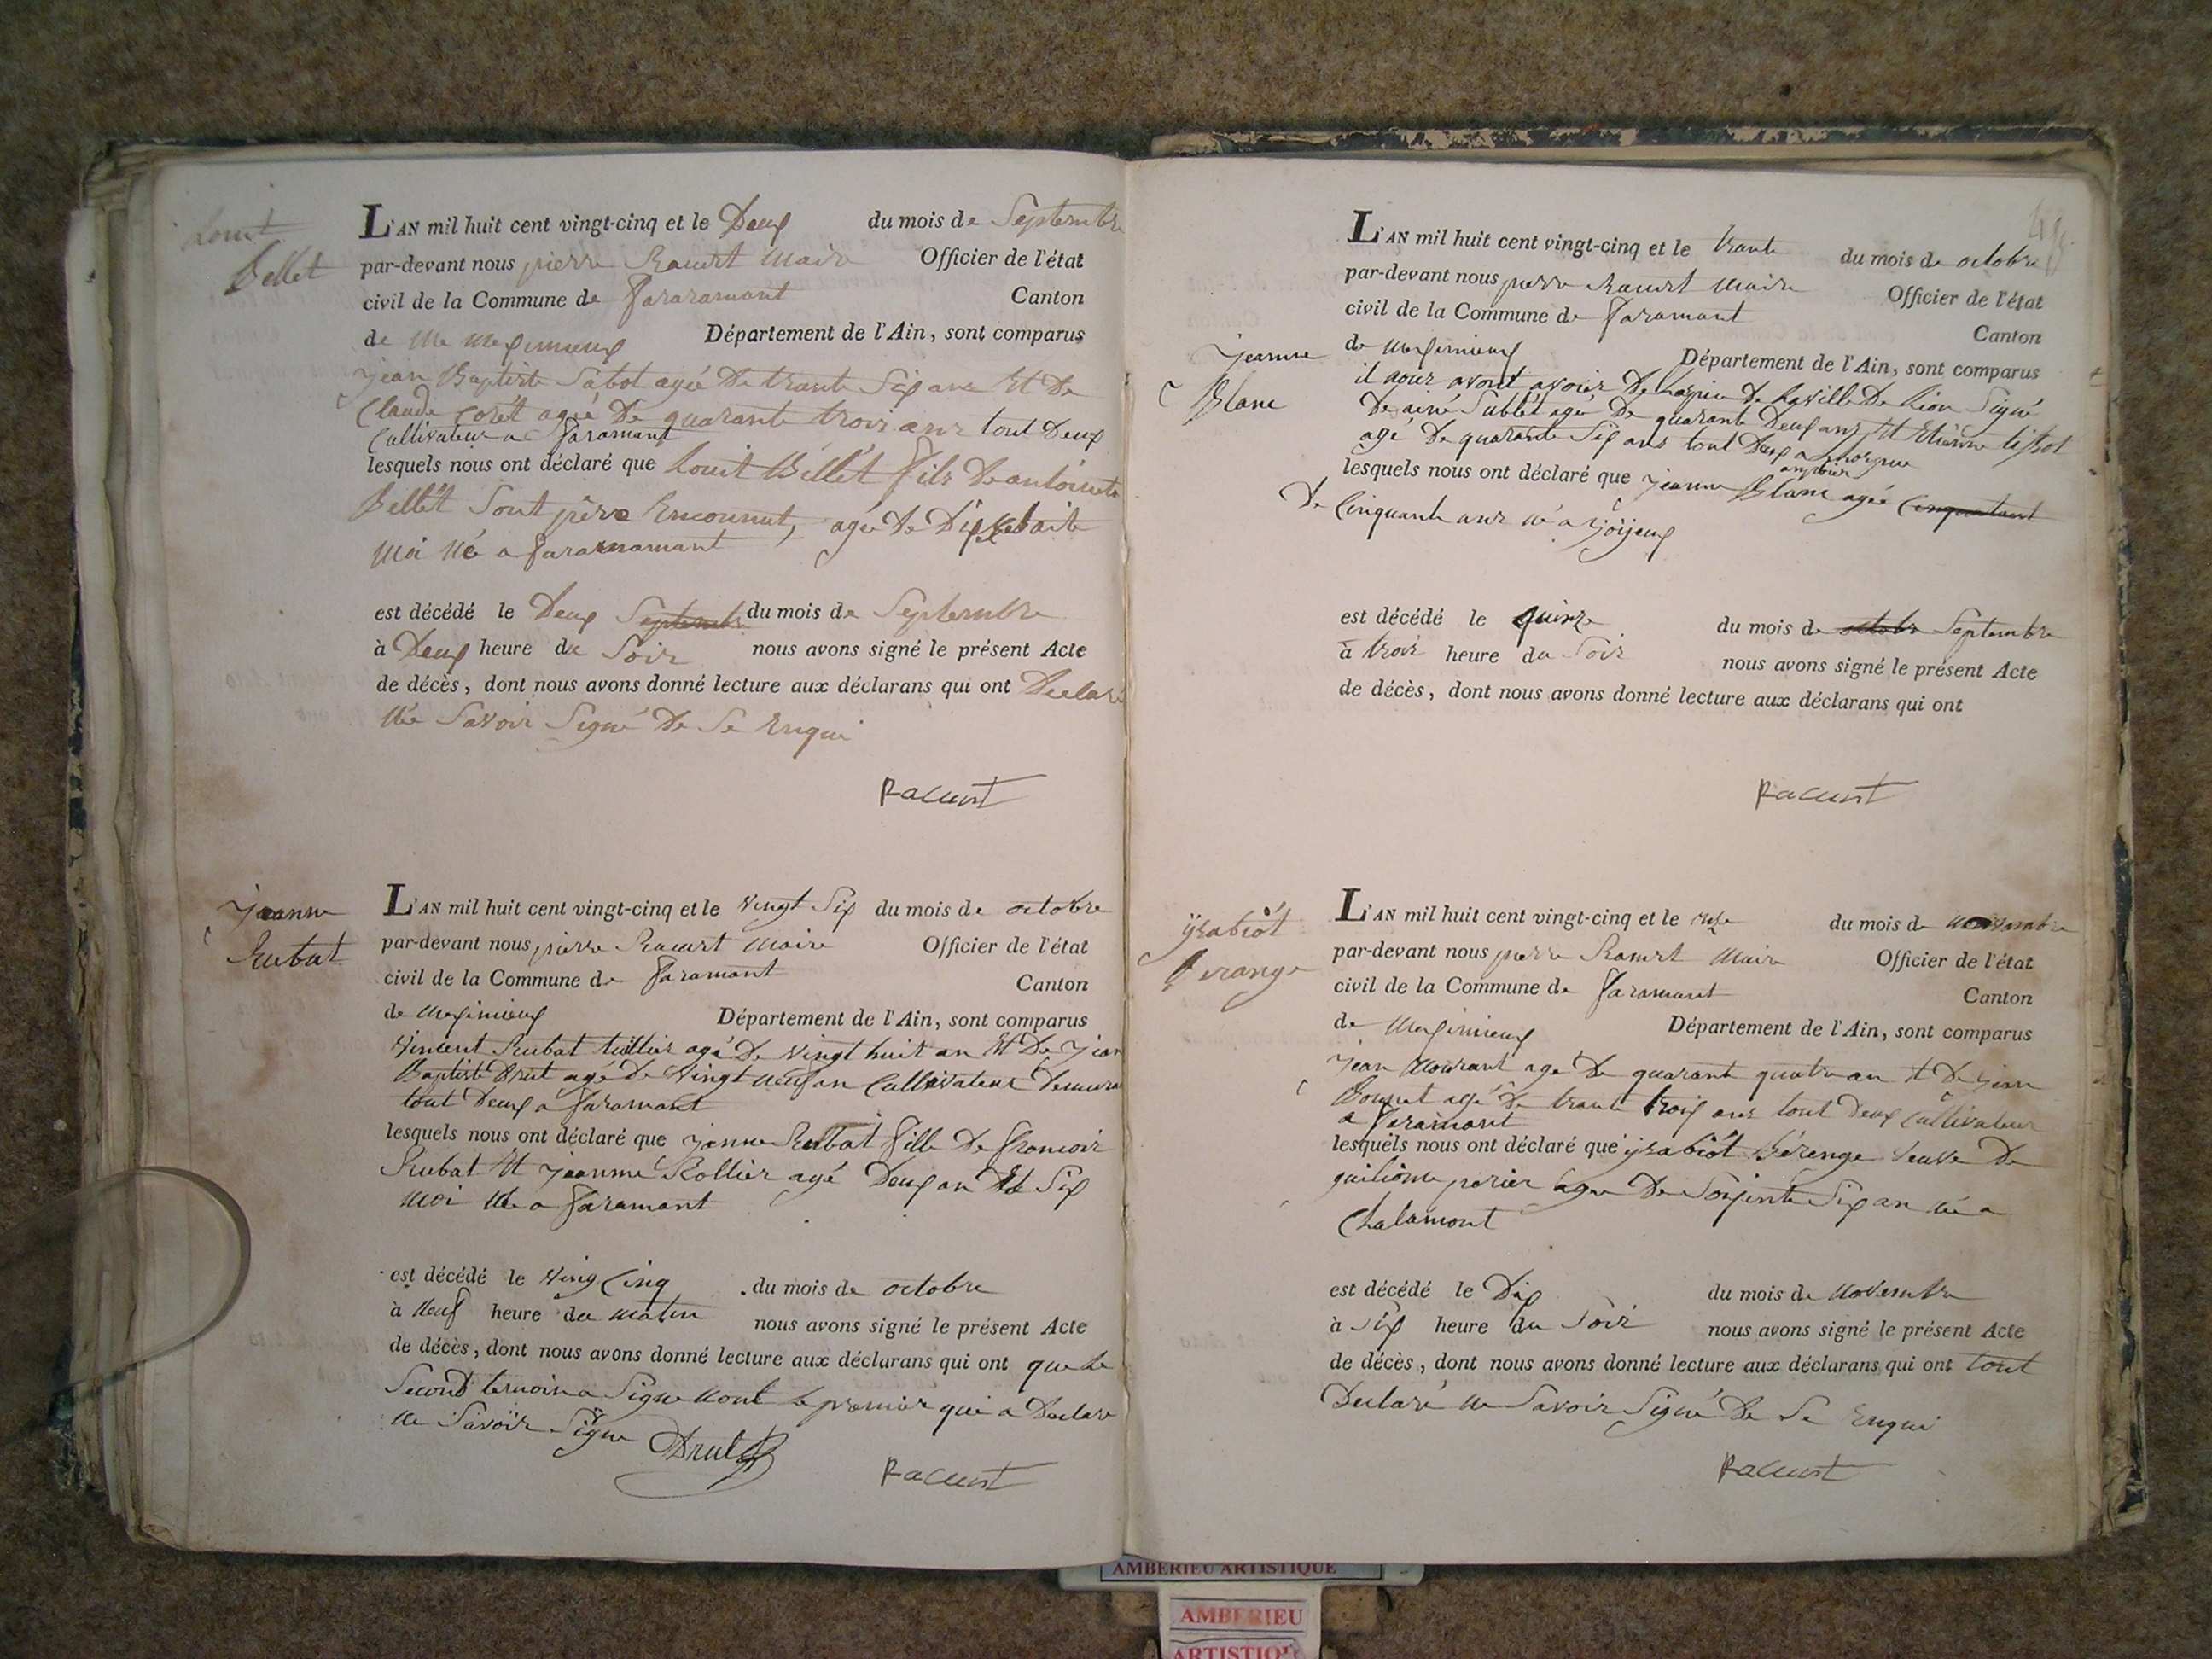 Louit
Bellet
L'AN mil huit cent vingt-cinq et le Deux du mois de Septembre
par-devant nous pierre Racurt Maire Officier de l'état
civil de la Commune de fararamant Canton
de Me Meximieux Département de l'Ain, sont comparus
jean Baptiste Sabot agée De trante Six ans Et De
Claude Corét agée De quarante trois ans tout Deux
Cultivateur a faramant
lesquels nous ont déclaré que Louit Béllét fils De antoinete
Bellét Sont père Enconnut, agée De Dix
moi né a
est décédé le Deux Septembre du mois de Septembre
à Deux heure du Soir nous avons signé le présent Acte
de décès, dont nous avons donné lecture aux déclarans qui ont Declaré
Né Savoir Signé De Se Enqui
Racurt
jeanne
Rubat
L'AN mil huit cent vingt-cinq et le vingt Six du mois de octobre
par-devant nous pierre Racurt Maire Officier de l'état
civil de la Commune de faramant Canton
de Meximieux Département de l'Ain, sont comparus
vincent Rubat agé De vingt huit an Et De jean
Baptiste Drut agé De vingt neuf an Cultivateur Demura
tout Deux a faramant
lesquels nous ont déclaré que jeanne Rubat fille De francoir
Rubat Et jeanne Rollier agé Deux an Et Six
moi Né a faramant
est décédé le ving Cinq du mois de octobre
à neuf heure du matin nous avons signé le présent Acte
de décès, dont nous avons donné lecture aux déclarans qui ont que le
Second temoin a Signe nont le premier qui a Declare
ne Savoir Signe
Drut
Racurt
jeanne
Blanc
L'AN mil huit cent vingt-cinq et le trante du mois de octobre
par-devant nous pierre Racurt Maire Officier de l'état
civil de la Commune de faramant Canton
de Meximieux Département de l'Ain, sont comparus
il nour avont De La ville De Lion Signé
De ainé Sublét agé De quarante Deux ans Et Etienne
agé De quarante Six ans tout Deux a
lesquels nous ont déclaré que jeanne Blanc agée Cinquatant
De Cinquante ans né a joÿeux
est décédé le quinze du mois de octobr Septembre
à trois heure du Soir nous avons signé le présent Acte
de décès, dont nous avons donné lecture aux déclarans qui ont
Racurt
ÿsabiót
Berange
L'AN mil huit cent vingt-cinq et le onze du mois de Novembre
par-devant nous pierre Racurt Maire Officier de l'état
civil de la Commune de faramant Canton
de Meximieux Département de l'Ain, sont comparus
jean Mourant age De quarant quatre an Et De jean
Bonnet agé De trante troix ans tout Deux Cultivateur
a faramant
lesquels nous ont déclaré que ÿsabiót Bérenge veuve De
périer agee De Soixinte Six an né a
Chalamont
est décédé le Dix du mois de Novembre
à Six heure du Soir nous avons signé le présent Acte
de décès, dont nous avons donné lecture aux déclarans qui ont tout
Declaré ne Savoir Signé De Se Enqui
Racurt
AMBERIEU ARTISTIQUE
AMBERIEU
ARTISTIQUE